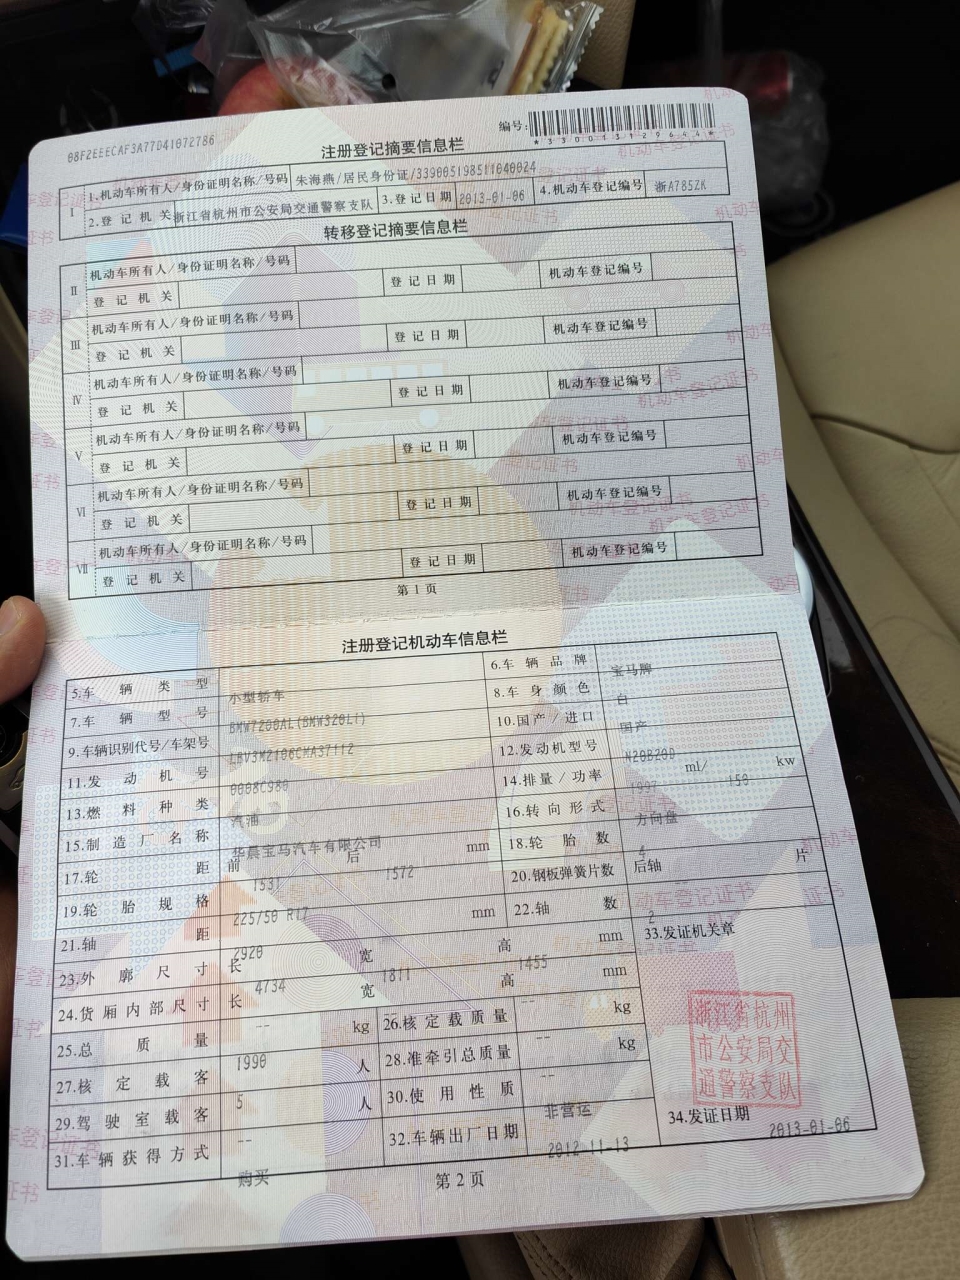 08F2EEECAF3A77D41072786
编号:
*330013129644*
注册登记摘要信息栏
I 1.机动车所有人/身份证明名称/号码 朱海燕/居民身份证/339005198511040024
2.登记机关 浙江省杭州市公安局交通警察支队 3.登记日期 2013-01-06 4.机动车登记编号 浙A785ZK
转移登记摘要信息栏
II 机动车所有人/身份证明名称/号码
登记机关 登记日期 机动车登记编号
III 机动车所有人/身份证明名称/号码
登记机关 登记日期 机动车登记编号
IV 机动车所有人/身份证明名称/号码
登记机关 登记日期 机动车登记编号
V 机动车所有人/身份证明名称/号码
登记机关 登记日期 机动车登记编号
VI 机动车所有人/身份证明名称/号码
登记机关 登记日期 机动车登记编号
VII 机动车所有人/身份证明名称/号码
登记机关 登记日期 机动车登记编号
第1页
注册登记机动车信息栏
5.车辆类型 小型轿车 6.车辆品牌 宝马牌
7.车辆型号 BMW7200AL(BMW320Li) 8.车身颜色 白
9.车辆识别代号/车架号 LBV3M2106CMA37112 10.国产/进口 国产
11.发动机号 0008C980 12.发动机型号 N20B20D
13.燃料种类 汽油 14.排量/功率 1997 ml/ 150 kw
15.制造厂名称 华晨宝马汽车有限公司 16.转向形式 方向盘
17.轮距 前 1531 后 1572 mm 18.轮胎数 4
19.轮胎规格 225/50 R17 20.钢板弹簧片数 后轴 -- 片
21.轴距 2920 mm 22.轴数 2
23.外廓尺寸 长 4734 宽 1811 高 1455 mm 33.发证机关章
24.货厢内部尺寸 长 -- 宽 -- 高 -- mm
25.总质量 1990 kg 26.核定载质量 -- kg
27.核定载客 5 人 28.准牵引总质量 -- kg
29.驾驶室载客 -- 人 30.使用性质 非营运
31.车辆获得方式 购买 32.车辆出厂日期 2012-11-13 34.发证日期 2013-01-06
浙江省杭州
市公安局交
通警察支队
第2页